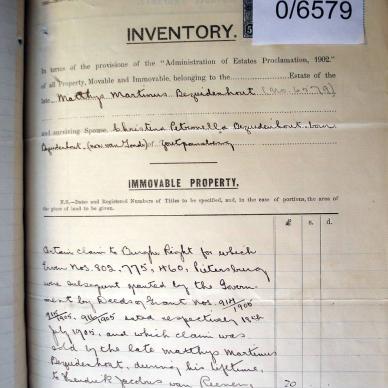 0/6579
INVENTORY.
In terms of the provisions of the "Administration of Estates Proclamation, 1902."
of all Property, Movable and Immovable, belonging to the Estate of the
late Matthys Martinus Bezuidenhout (No. 6579)
and surviving Spouse Christina Petronella Bezuidenhout born
Bezuidenhout, (now van Zande) of Zoutpansberg
IMMOVABLE PROPERTY.
N.B.—Dates and Registered Numbers of Titles to be specified, and, in the case of portions, the area of
the piece of land to be given.
£ s. d.
Certain claim to Burgher Right for which
Erven Nos. 802, 775, 460, Pietersburg
were subsequent granted by the Govern-
ment by Deeds of Grant Nos.
dated respectively 18th
July 1905, and which claim was
sold by the late Matthys Martinus
Bezuidenhout, during his lifetime,
to Hendrik Jacobus van 70